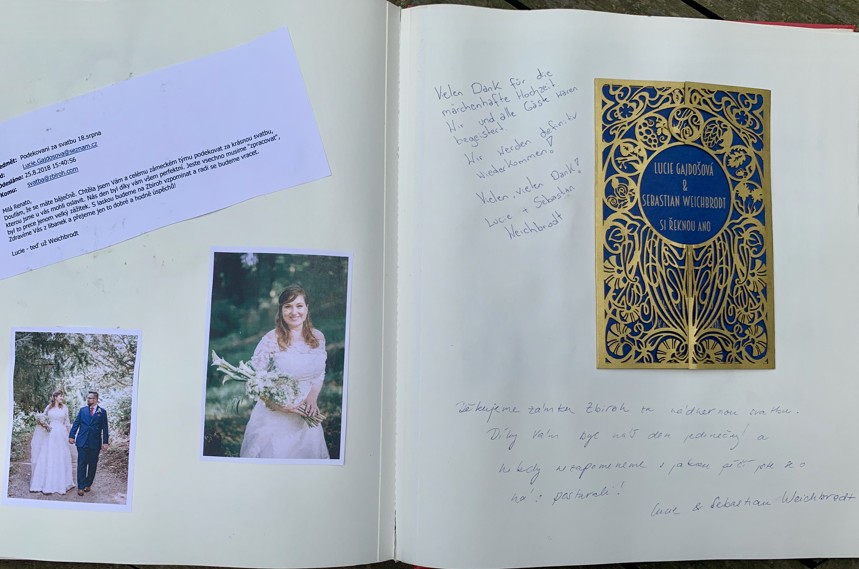 Předmět: Podekovani za svatbu 18.srpna
Od: Lucie.Gajdosova@seznam.cz
Odesláno: 25.8.2018 15:40:56
Komu: svatba@zbiroh.com
Milá Renato,
Doufám, že se máte báječně. Chtěla jsem Vám a celému zámeckém týmu podekovat za krásnou svatbu,
kterou jsme u vás mohli oslavit. Nás den byl díky vám všem perfektní. Jeste vsechno musíme "zpracovat",
byl to prece jenom velky zážitek. S laskou budeme na Zbiroh vzpominat a radi se budeme vracet.
Zdravíme Vás z líbanek a přejeme jen to dobré a hodně úspěchů!
Lucie - teď už Weichbrodt
Vielen Dank für die
märchenhafte Hochzeit
Wir und alle Gäste waren
begeistert.
Wir werden definitiv
wiederkommen!
Vielen, vielen Dank!
Lucie + Sebastian
Weichbrodt
LUCIE GAJDOŠOVÁ
&
SEBASTIAN WEICHBRODT
SI ŘEKNOU ANO
Děkujeme zámku Zbiroh za nádhernou svatbu.
Díky Vám byl náš den jedinečný! a
nikdy nezapomeneme s jakou péčí jste se o
nás postarali!
Lucie & Sebastian Weichbrodt